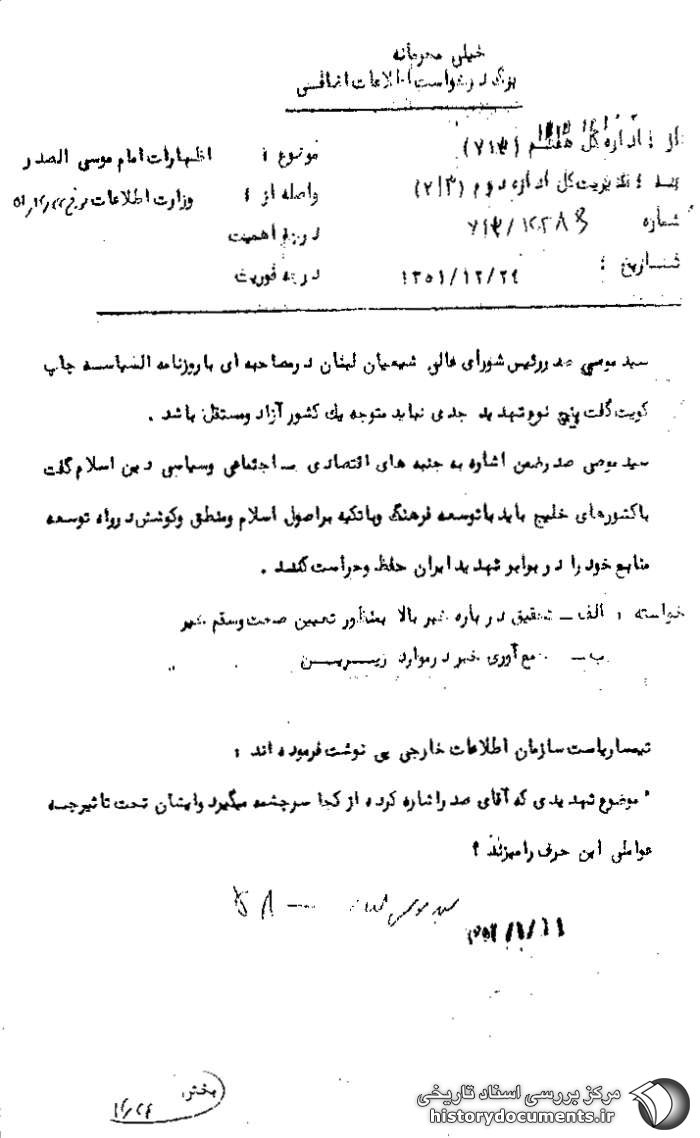 خیلی محرمانه
برگ درخواست اطلاعات اضافی
از : اداره کل هفتم (۷۱۳)
موضوع : اظهارات امام موسی الصدر
به : مدیریت کل اداره دوم (۲۱۳)
واصله از : وزارت اطلاعات مورخ
شماره ۷۱۳/
درجه اهمیت
تاریخ : ۱۳۵۱/۱۲/۲۴
درجه فوریت
سید موسی صدر رئیس شورای عالی شیعیان لبنان در مصاحبه ای با روزنامه السیاسه چاپ
کویت گفت هیچ نوع تهدید جدی نباید متوجه یک کشور آزاد و مستقل باشد .
سید موسی صدر ضمن اشاره به جنبه های اقتصادی ـ اجتماعی و سیاسی دین اسلام گفت
با کشورهای خلیج باید با توسعه فرهنگ و با تکیه بر اصول اسلام و منطق و کوشش در راه توسعه
منابع خود را در برابر تهدید ایران حفظ و حراست کنند .
خواسته : الف ـ تحقیق در باره خبر بالا بمنظور تعیین صحت و سقم خبر
ب ـ جمع آوری خبر در موارد زیرین
تیمسار ریاست سازمان اطلاعات خارجی پی نوشت فرموده اند :
" موضوع تهدیدی که آقای صدر اشاره کرده از کجا سرچشمه میگیرد و ایشان تحت تاثیر چه
عواملی این حرف را میزنند ؟
سید موسی صدر
بخش
۱۲/۲۴
مرکز بررسی اسناد تاریخی
historydocuments.ir